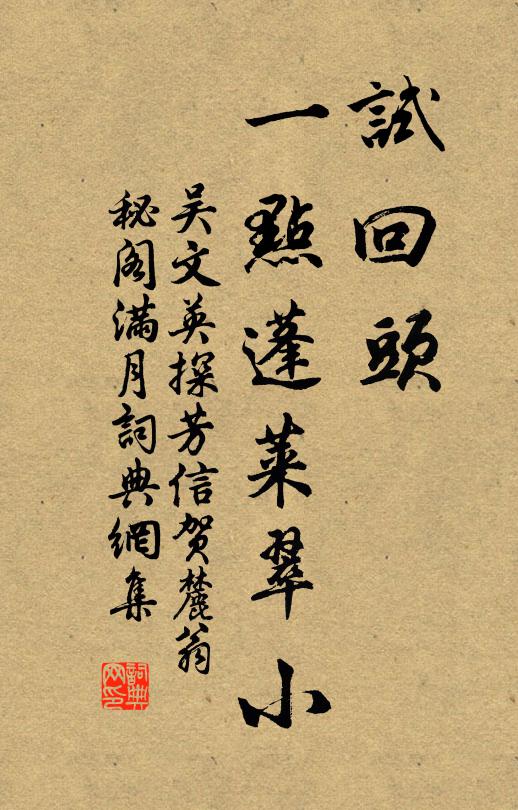 試回頭
一點蓬萊翠小
吴文英探芳信贺麓翁
秘阁滿月詞典網集
詞典网印